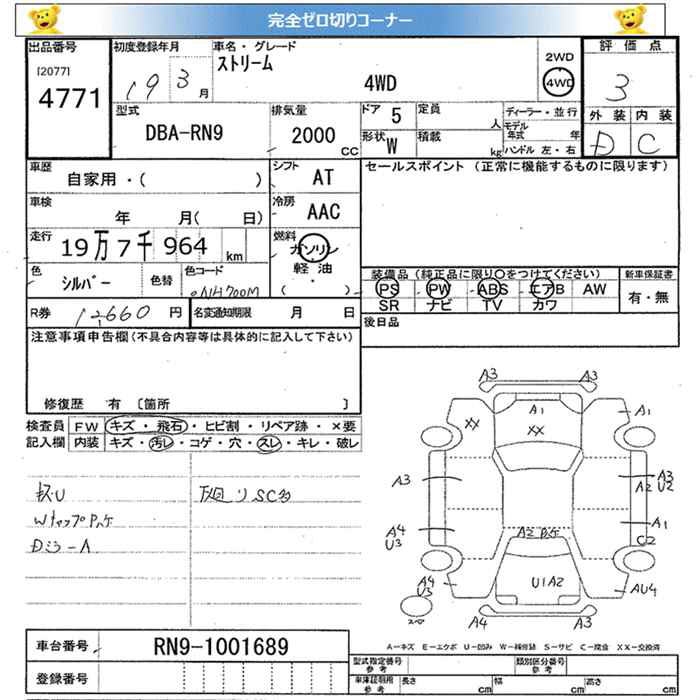 完全ゼロ切りコーナー
出品番号 初度登録年月 車名・グレード 評価点
[2077] 19 3月 ストリーム 4WD 2WD 4WD 3
4771
型式 排気量 ドア 5 定員 人 ディーラー・並行 外装 内装
DBA-RN9 2000 CC 形状 W 積載 kg モデル年式 年 D C
ハンドル 左・右
車歴 自家用・( ) シフト AT セールスポイント (正常に機能するものに限ります)
車検 年 月( 日) 冷房 AAC
走行 19万7千964 km 燃料 ガソリン
軽油
( ・ )
色 シルバー 色替 色コード NH700M
装備品 (純正品に限り○をつけてください) 新車保証書
PS PW ABS エアB AW 有・無
SR ナビ TV カワ
R券 12660 円 名変通知期限 月 日 後日品
注意事項申告欄(不具合内容等は具体的に記入して下さい)
修復歴 有 [箇所 ]
検査員 FW キズ・飛石・ヒビ割・リペア跡・×要
記入欄 内装 キズ・汚レ・コゲ・穴・スレ・キレ・破レ
下廻りSC多
A3 A3
XX A1 XX A1
A3 A3 A2 U2
A4 U3 A2 A1 C2
A4 U3 U1A2 AU4
A4 A3
A-キズ E-エクボ U-凹み W-補修跡 S-サビ C-腐食 XX-交換済
車台番号 RN9-1001689
登録番号
型式指定番号 参考 類別区分番号 参考
車庫証明用 参考 長さ cm 幅 cm 高さ cm